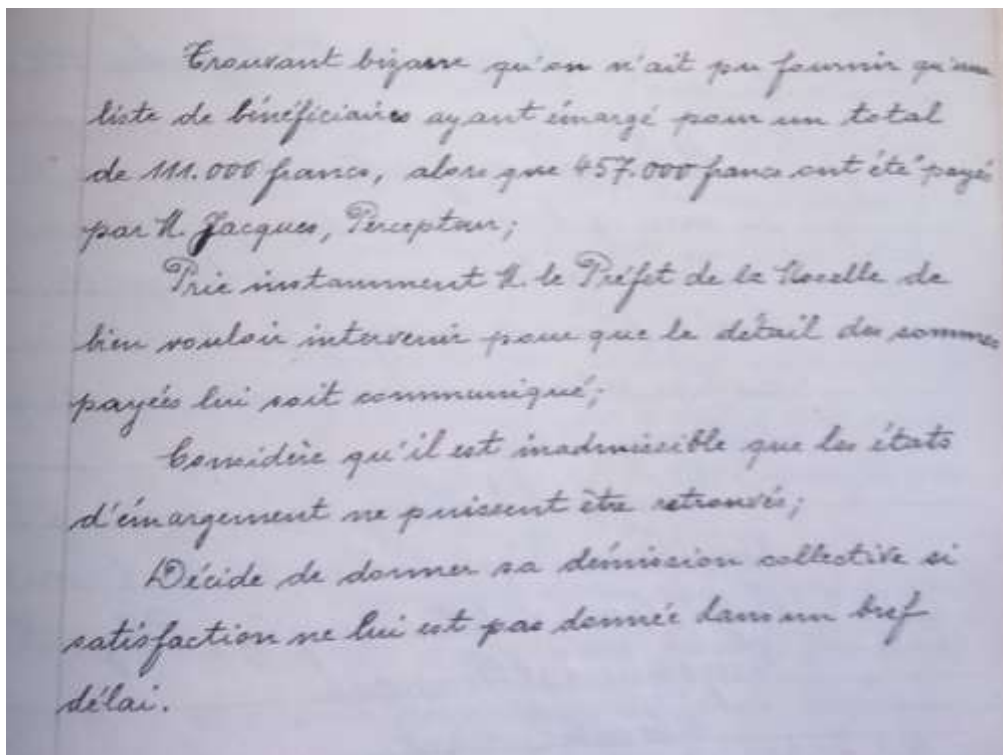 Trouvant bizarre qu'on n'ait pu fournir qu'une
liste de bénéficiaires ayant émargé pour un total
de 111.000 francs, alors que 457.000 francs ont été payés
par M. Jacques, Percepteur;
Prie instamment M. le Préfet de la Moselle de
bien vouloir intervenir pour que le détail des sommes
payées lui soit communiqué;
Considère qu'il est inadmissible que les états
d'émargement ne puissent être retrouvés;
Décide de donner sa démission collective si
satisfaction ne lui est pas donnée dans un bref
délai.